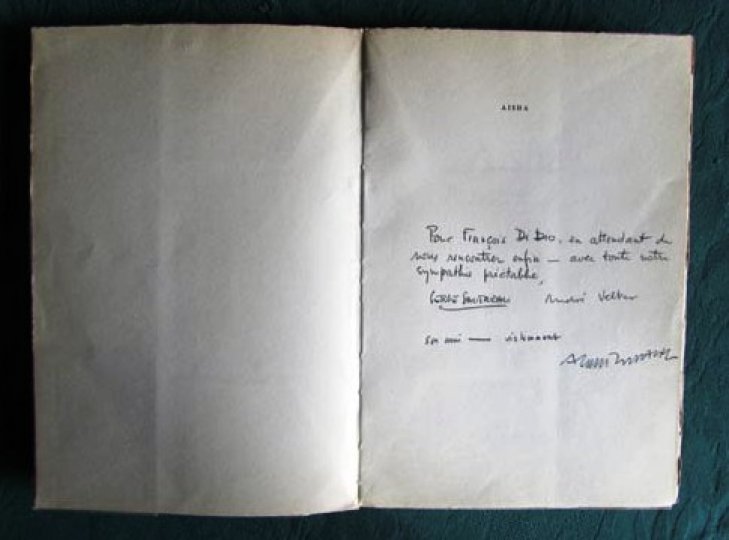 AISHA
Pour François Di Dio, en attendant de
nous rencontrer enfin — avec toute notre
sympathie préalable,
Serge Sautreau André Velter
Son ami —